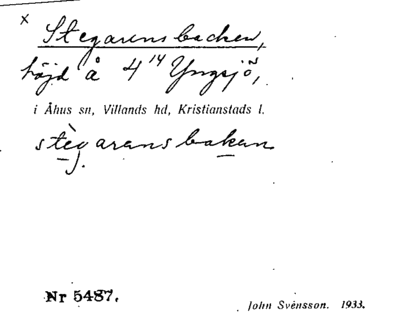 x
Stegarensbacken,
höjd å 4¹⁴ Yngsjö,
i Åhus sn, Villands hd, Kristianstads l.
stègarensbakan
Nr 5487.
John Svensson. 1933.